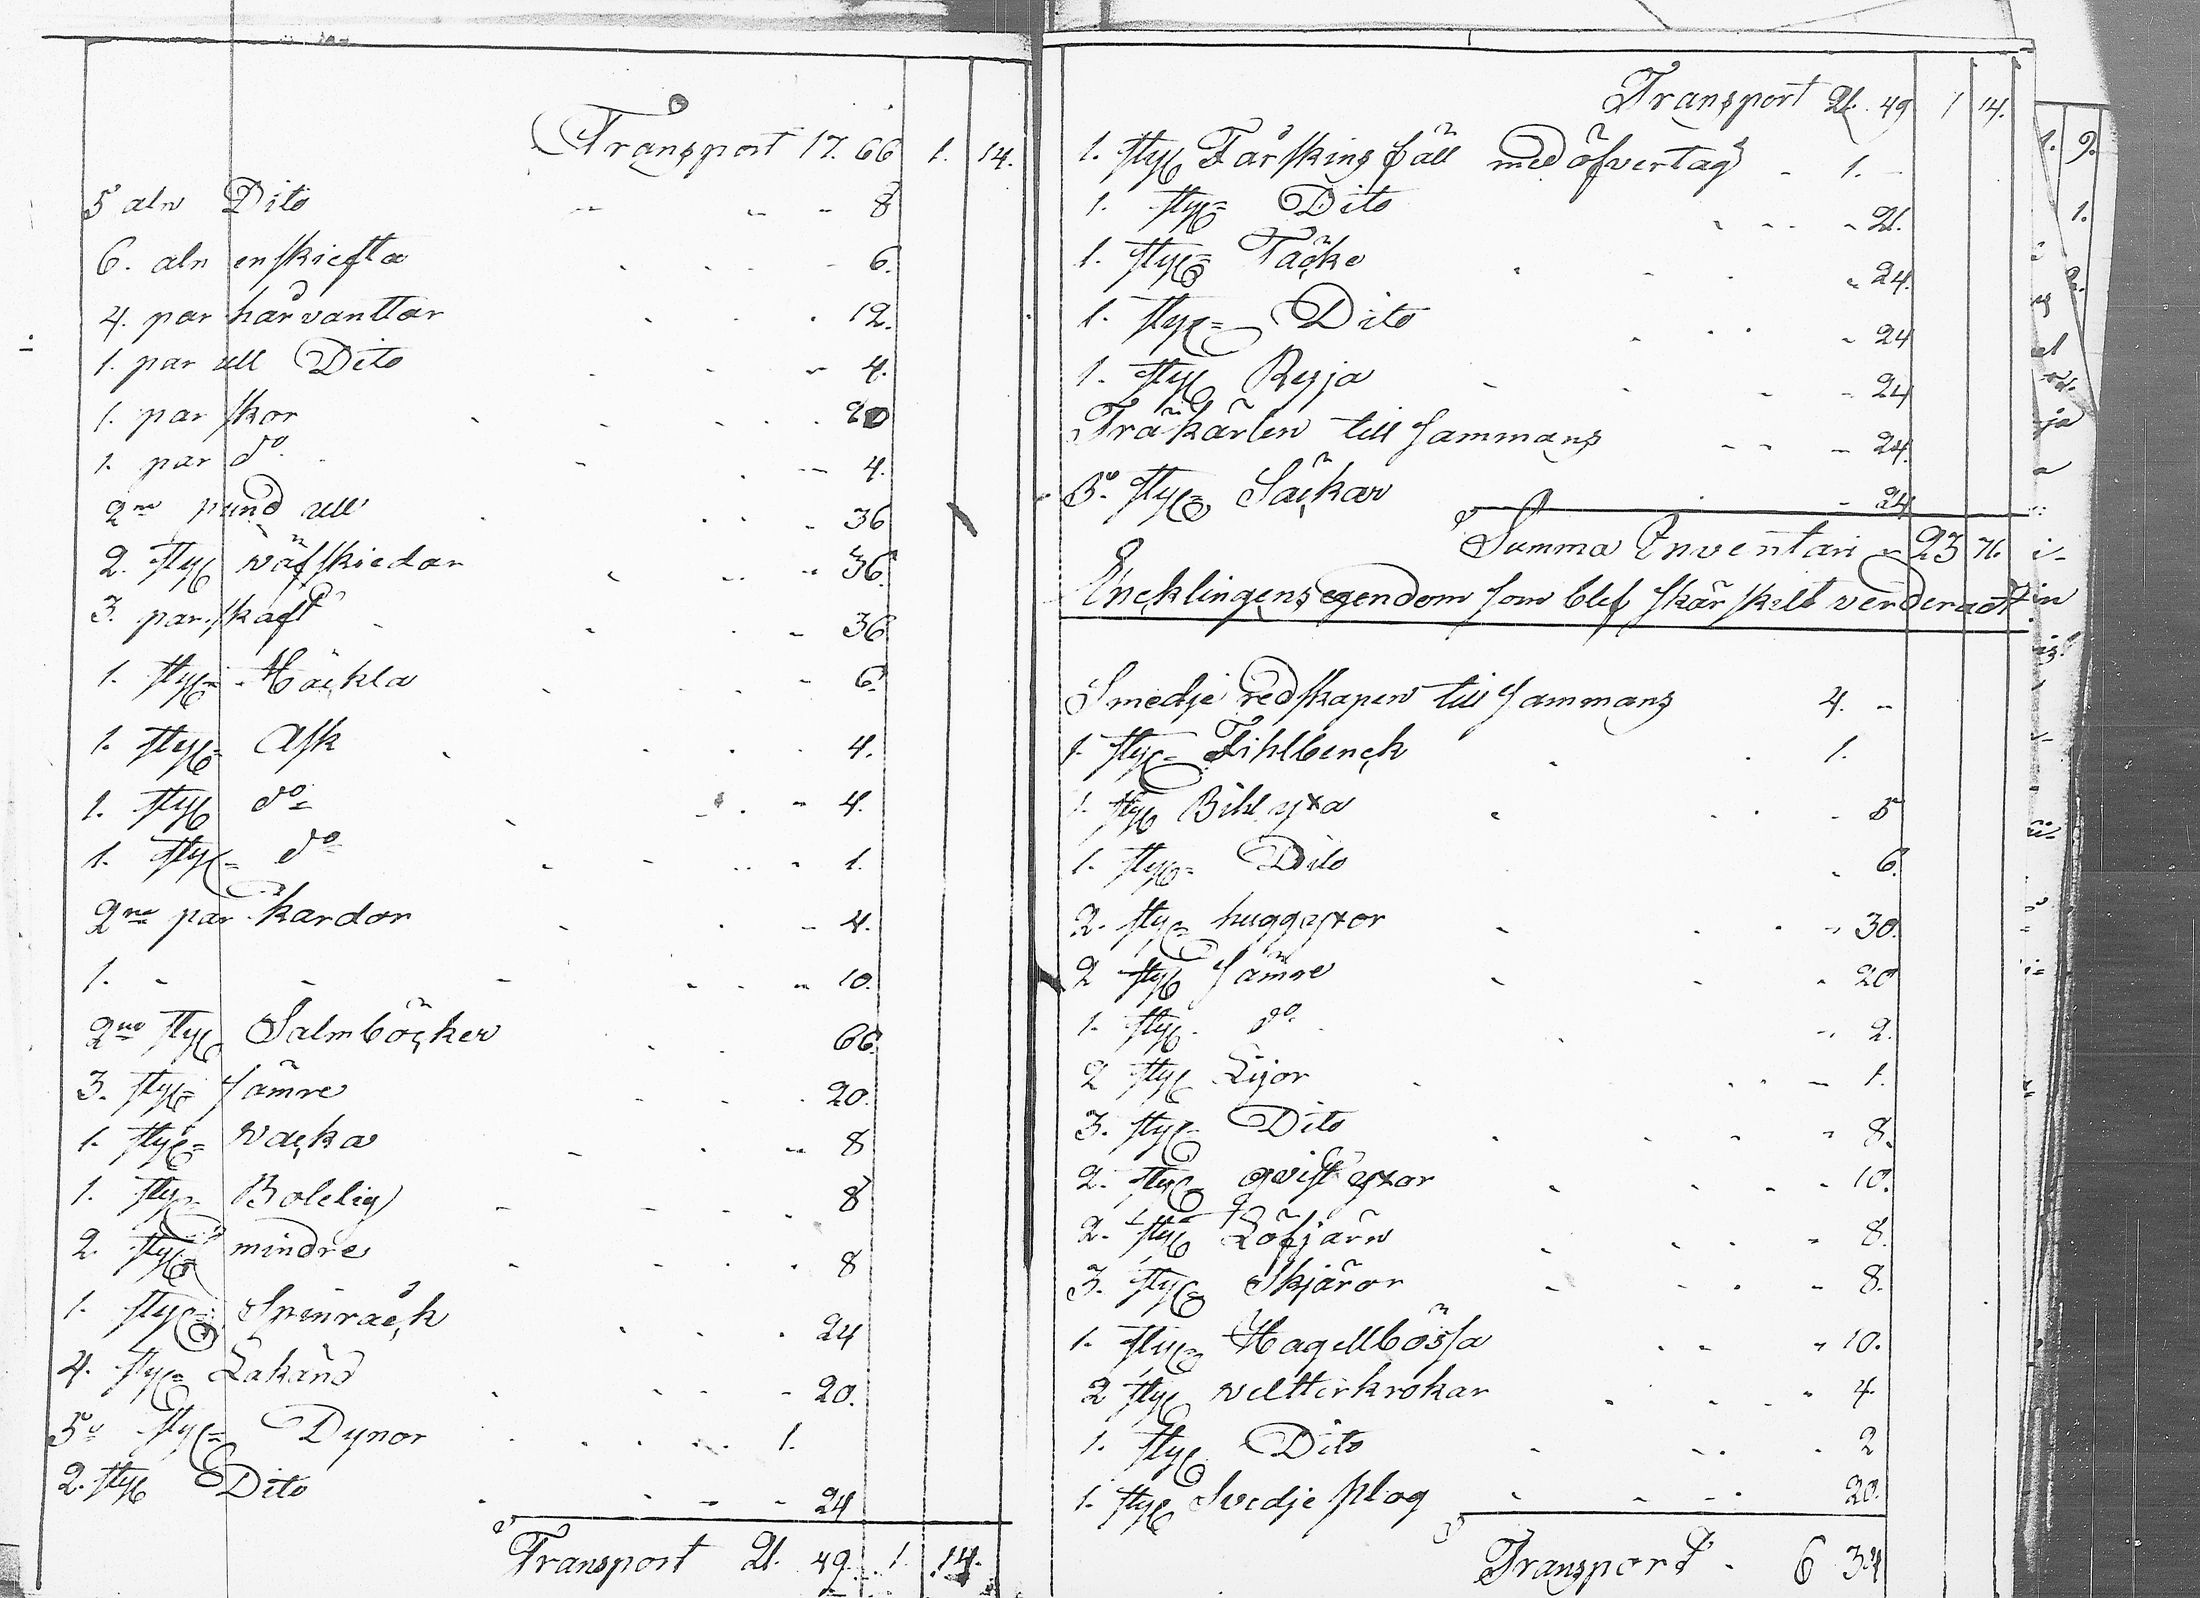 Transport 17. 66 1. 14.
5 aln Dito 8
6. aln enskiefta 6.
4. par hårvanttar 12.
1. par ull Dito 4.
1. par skor 20
1. par do 4.
2ne pund ull 36
2. styc wäfskiedar 36.
3. par skaft 36
1. styc Häckla 6.
1. styc Ask 4.
1. styc do 4.
1. styc do 1.
2ne par kardor 4.
1. - - - 10.
2ne styc Salmböcker 66.
3. styc sämre 20.
1. styc Wacka 8
1. styc Bolelig 8
2. styc mindre 8
1. styc Spinråck 24
4. styc Lakänd 20.
5 styc Dynor 1.
2. styc Dito 24
Transport 21. 49. 1. 14.
Transport 21. 49 1 14.
1. styc Fårskins fäll med öfvertag 1. -
1. styc Dito 21.
1. styc Täcke 24.
1. styc Dito 24
1. styc Ryja 24
Träkärlen till sammans 24.
5. styc Säckar 24
Summa Inventari 23 76.
Encklingens egendom som blef skärskilt verderadt
Smedje redskapen till sammans 4. -
1. styc Fihlbenck 1.
1. styc Bihl yxa 5
1. styc Dito 6.
2. styc huggyxor 30.
2 styc sämre 20
1. styc do 2.
2 styc Lijor 1.
3. styc Dito 8.
2. styc qvist yxor 10.
2. styc Löfjärn 8.
3. styc Skjäror 8.
1. styc Hagellbössa 10.
2 styc veltterkrokar 4
1. styc Dito 2
1. styc Svedje plog 20.
Transport 6 34